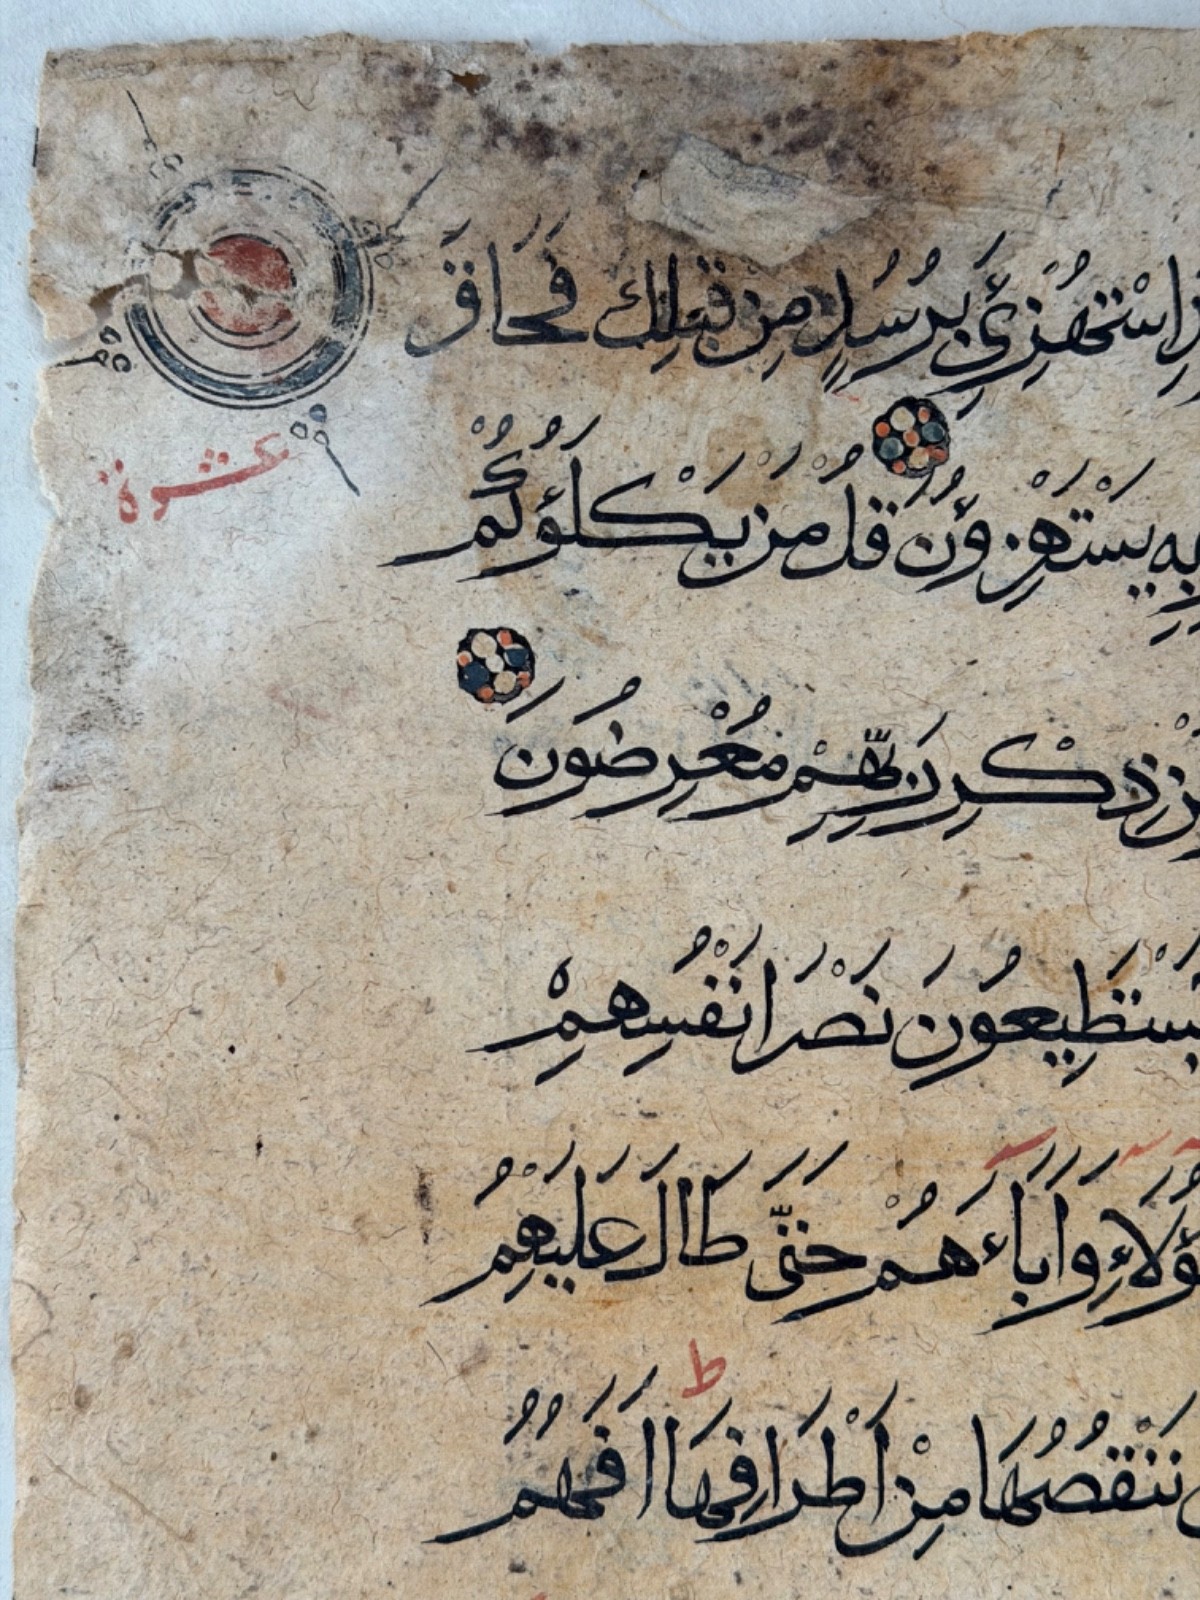 اسْتُهْزِئَ بِرُسُلٍ مِنْ قَبْلِكَ فَحَاقَ
بِهِ يَسْتَهْزِؤُنَ قُلْ مَنْ يَكْلَؤُكُمْ
عشرة
ذِكْرِ رَبِّهِمْ مُعْرِضُونَ
يَسْتَطِيعُونَ نَصْرَ اَنْفُسِهِمْ
وَاٰبَاءَهُمْ حَتّٰى طَالَ عَلَيْهِمُ
ط
نَنْقُصُهَا مِنْ اَطْرَافِهَا اَفَهُمُ